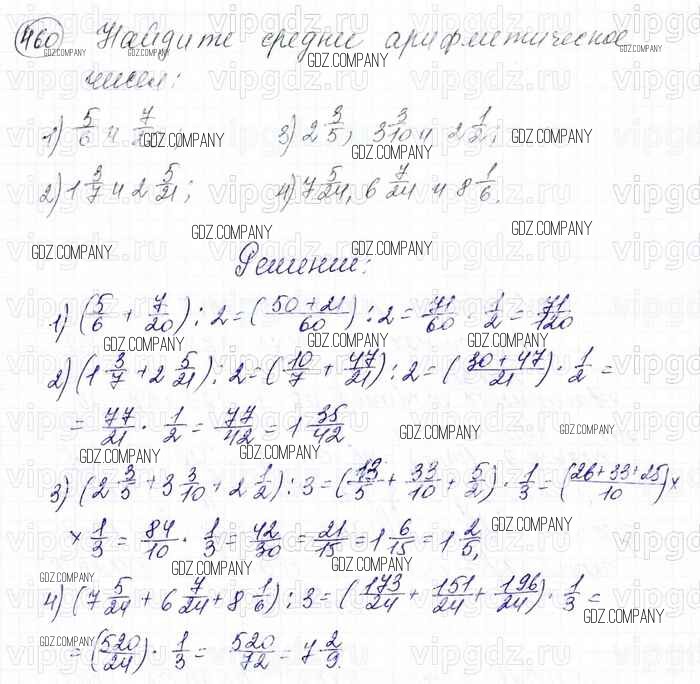 460 Найдите среднее арифметическое
чисел:
1) 5/6 и 7/20; 3) 2 3/5, 3 3/10 и 2 1/2;
2) 1 3/7 и 2 5/21; 4) 7 5/24, 6 7/24 и 8 1/6.
Решение:
1) (5/6 + 7/20) : 2 = (50+21/60) : 2 = 71/60 · 1/2 = 71/120
2) (1 3/7 + 2 5/21) : 2 = (10/7 + 47/21) : 2 = (30+47/21) · 1/2 =
= 77/21 · 1/2 = 77/42 = 1 35/42.
3) (2 3/5 + 3 3/10 + 2 1/2) : 3 = (13/5 + 33/10 + 5/2) · 1/3 = (26+33+25/10) ×
× 1/3 = 84/10 · 1/3 = 42/30 = 21/15 = 1 6/15 = 1 2/5,
4) (7 5/24 + 6 7/24 + 8 1/6) : 3 = (173/24 + 151/24 + 196/24) · 1/3 =
= (520/24) · 1/3 = 520/72 = 7 2/9.
GDZ.COMPANY
vipgdz.ru